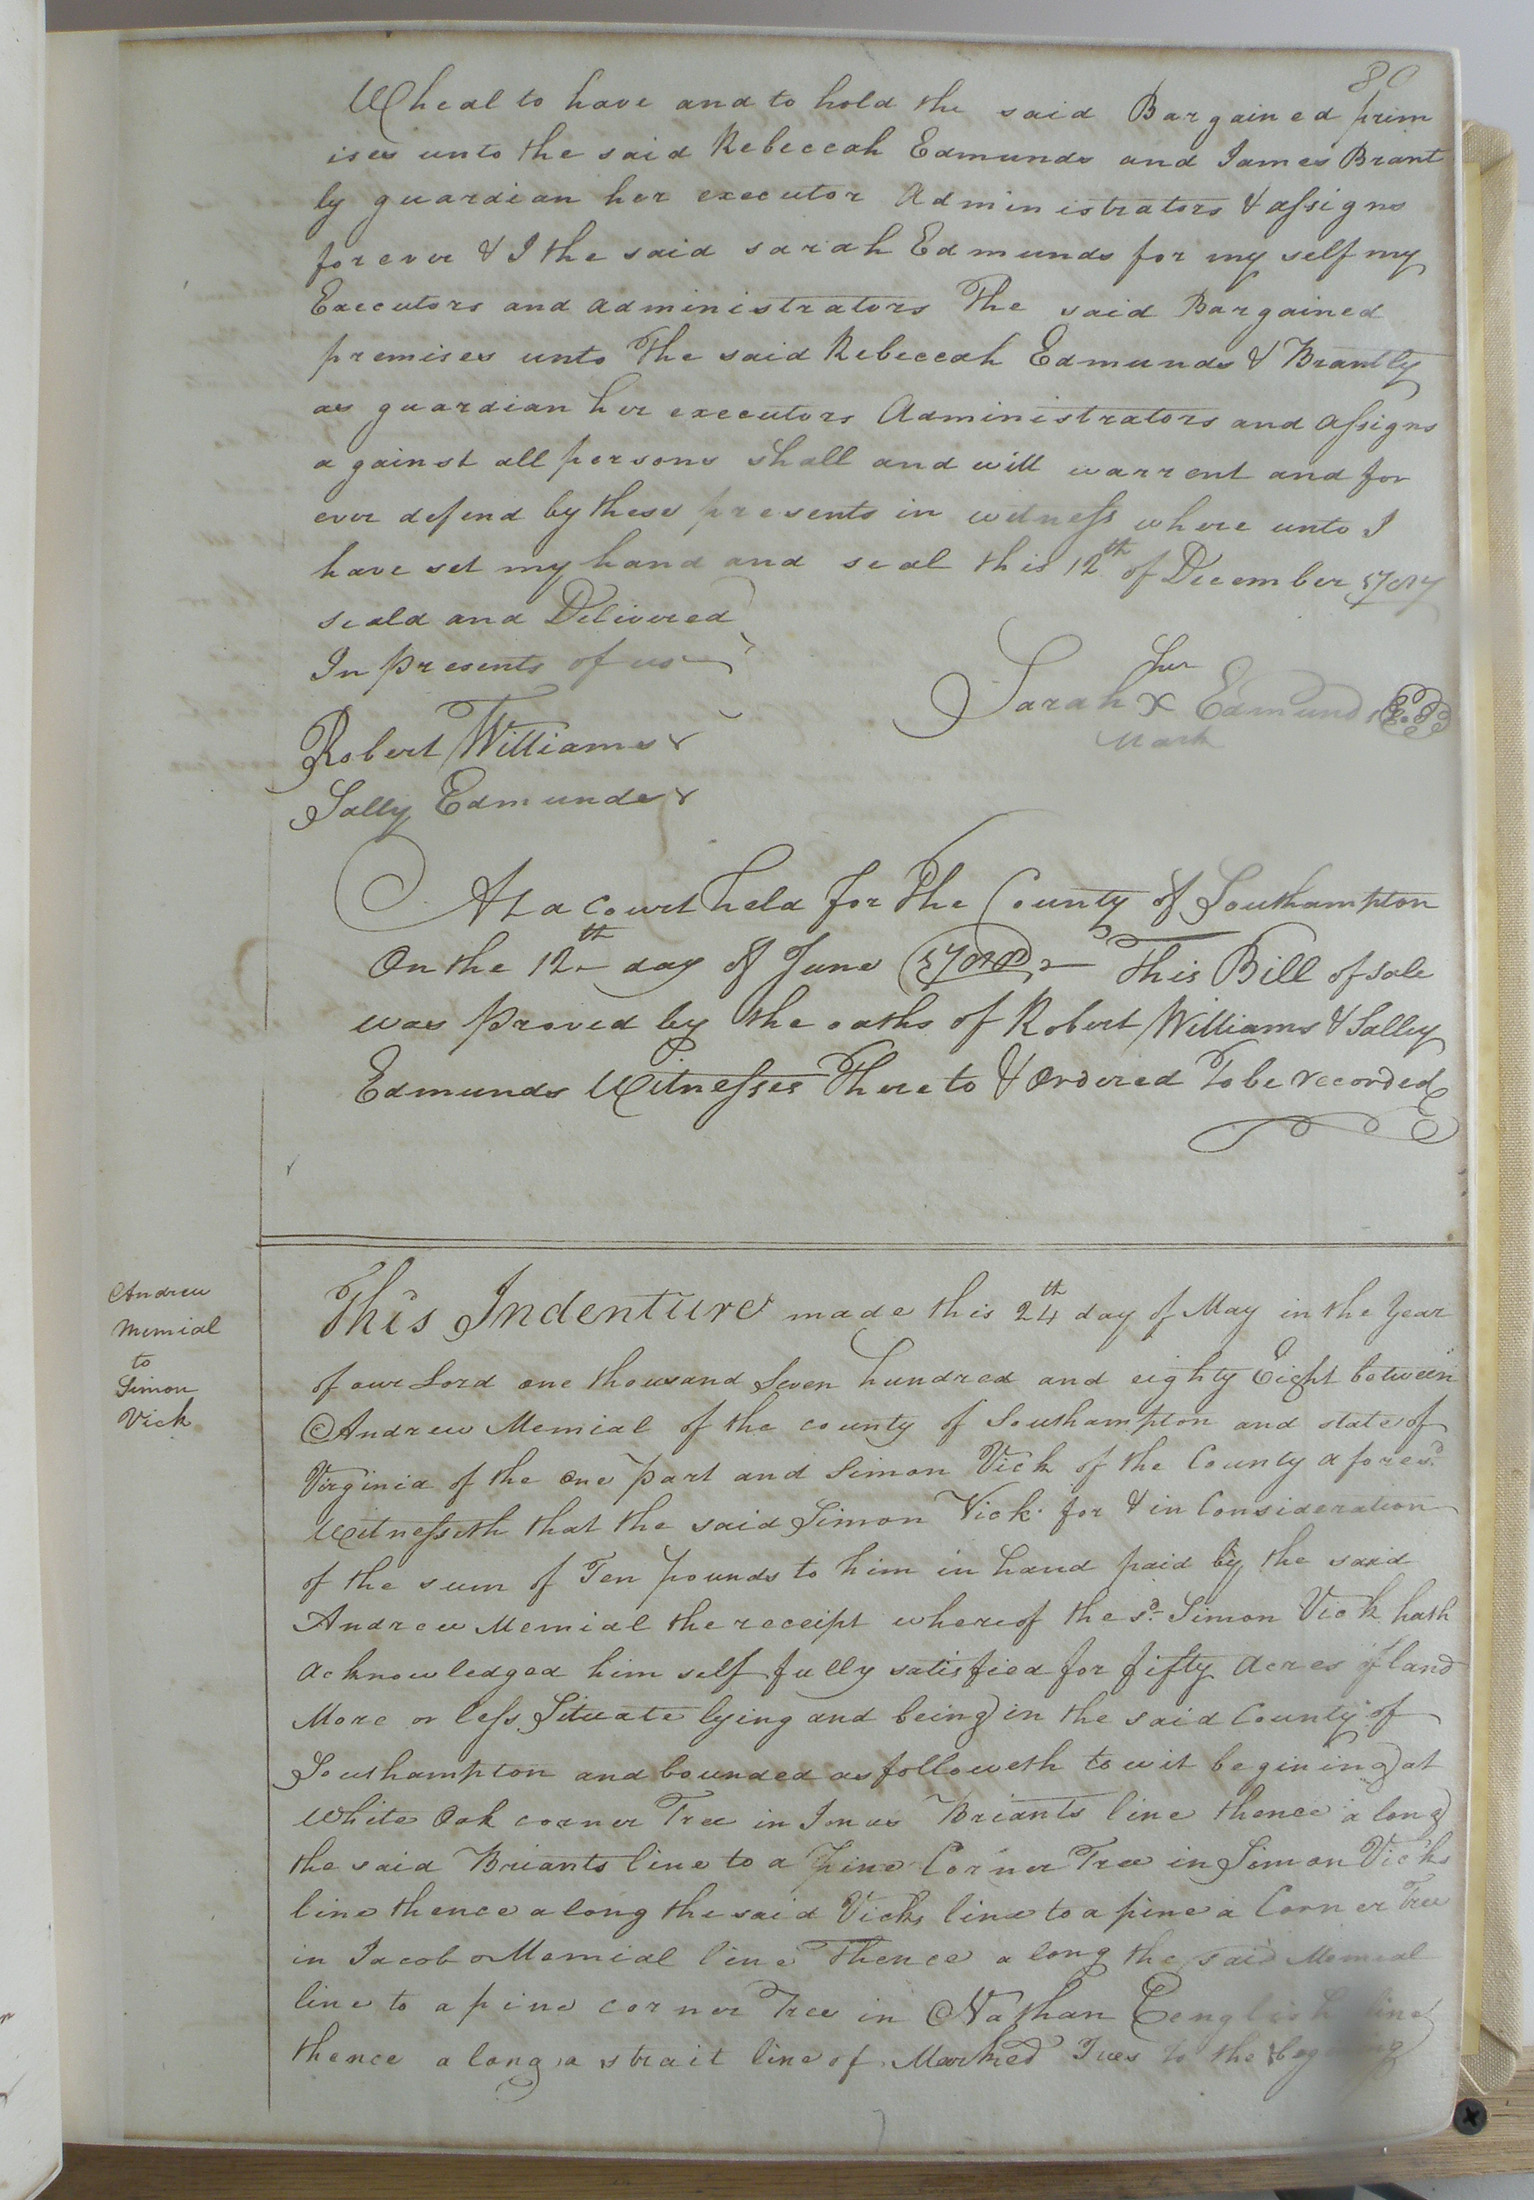 80
Wheal to have and to hold the said Bargained prim
ises unto the said Rebeccah Edmunds and James Brant
ly guardian her executor Administrators & assigns
forever & I the said sarah Edmunds for my self my
Executors and administrators The said Bargained
premises unto The said Rebeccah Edmunds & Brantly
as guardian her executors Administrators and assigns
against all persons shall and will warrent and for
ever defend by these presents in witness where unto I
have set my hand and seal this 12th of December
seald and Delivered
In presents of us
her
Sarah X Edmunds
Mark
Robert Williams
Sally Edmunds
At a Court held for The County of Southampton
On the 12th day of June This Bill of sale
was proved by the oaths of Robert Williams & Sally
Edmunds Witnesses There to & Ordered To be recorded
Andrew
Memial
to
Simon
Vick
This Indenture made this 24th day of May in the Year
of our Lord one thousand Seven hundred and eighty Eight between
Andrew Memial of the county of Southampton and state of
Virginia of the one part and Simon Vick of the County afores.d
Witnesseth that the said Simon Vick for & in Consideration
of the sum of Ten pounds to him in hand paid by the said
Andrew Memial the receipt whereof the s.d Simon Vick hath
acknowledged him self fully satisfied for fifty Acres of land
More or less Situate lying and being in the said County of
Southampton and bounded as followeth to wit begining at
White Oak corner Tree in Jonas Briants line thence along
the said Briants line to a pine Corner Tree in Simon Vicks
line thence along the said Vicks line to a pine a Corner Tree
in Jacob Memial line Thence along the said Memial
line to a pine corner Tree in Nathan line
thence along a strait line of Marked Trees to the beginning